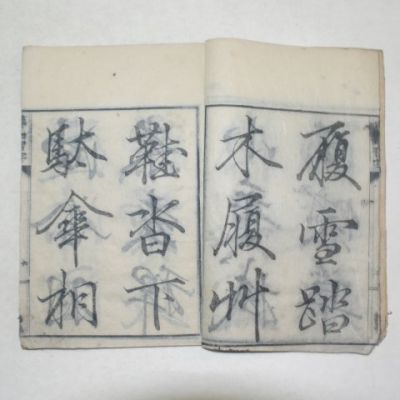 雪踏
木履艸
鞋沓下
駄傘相